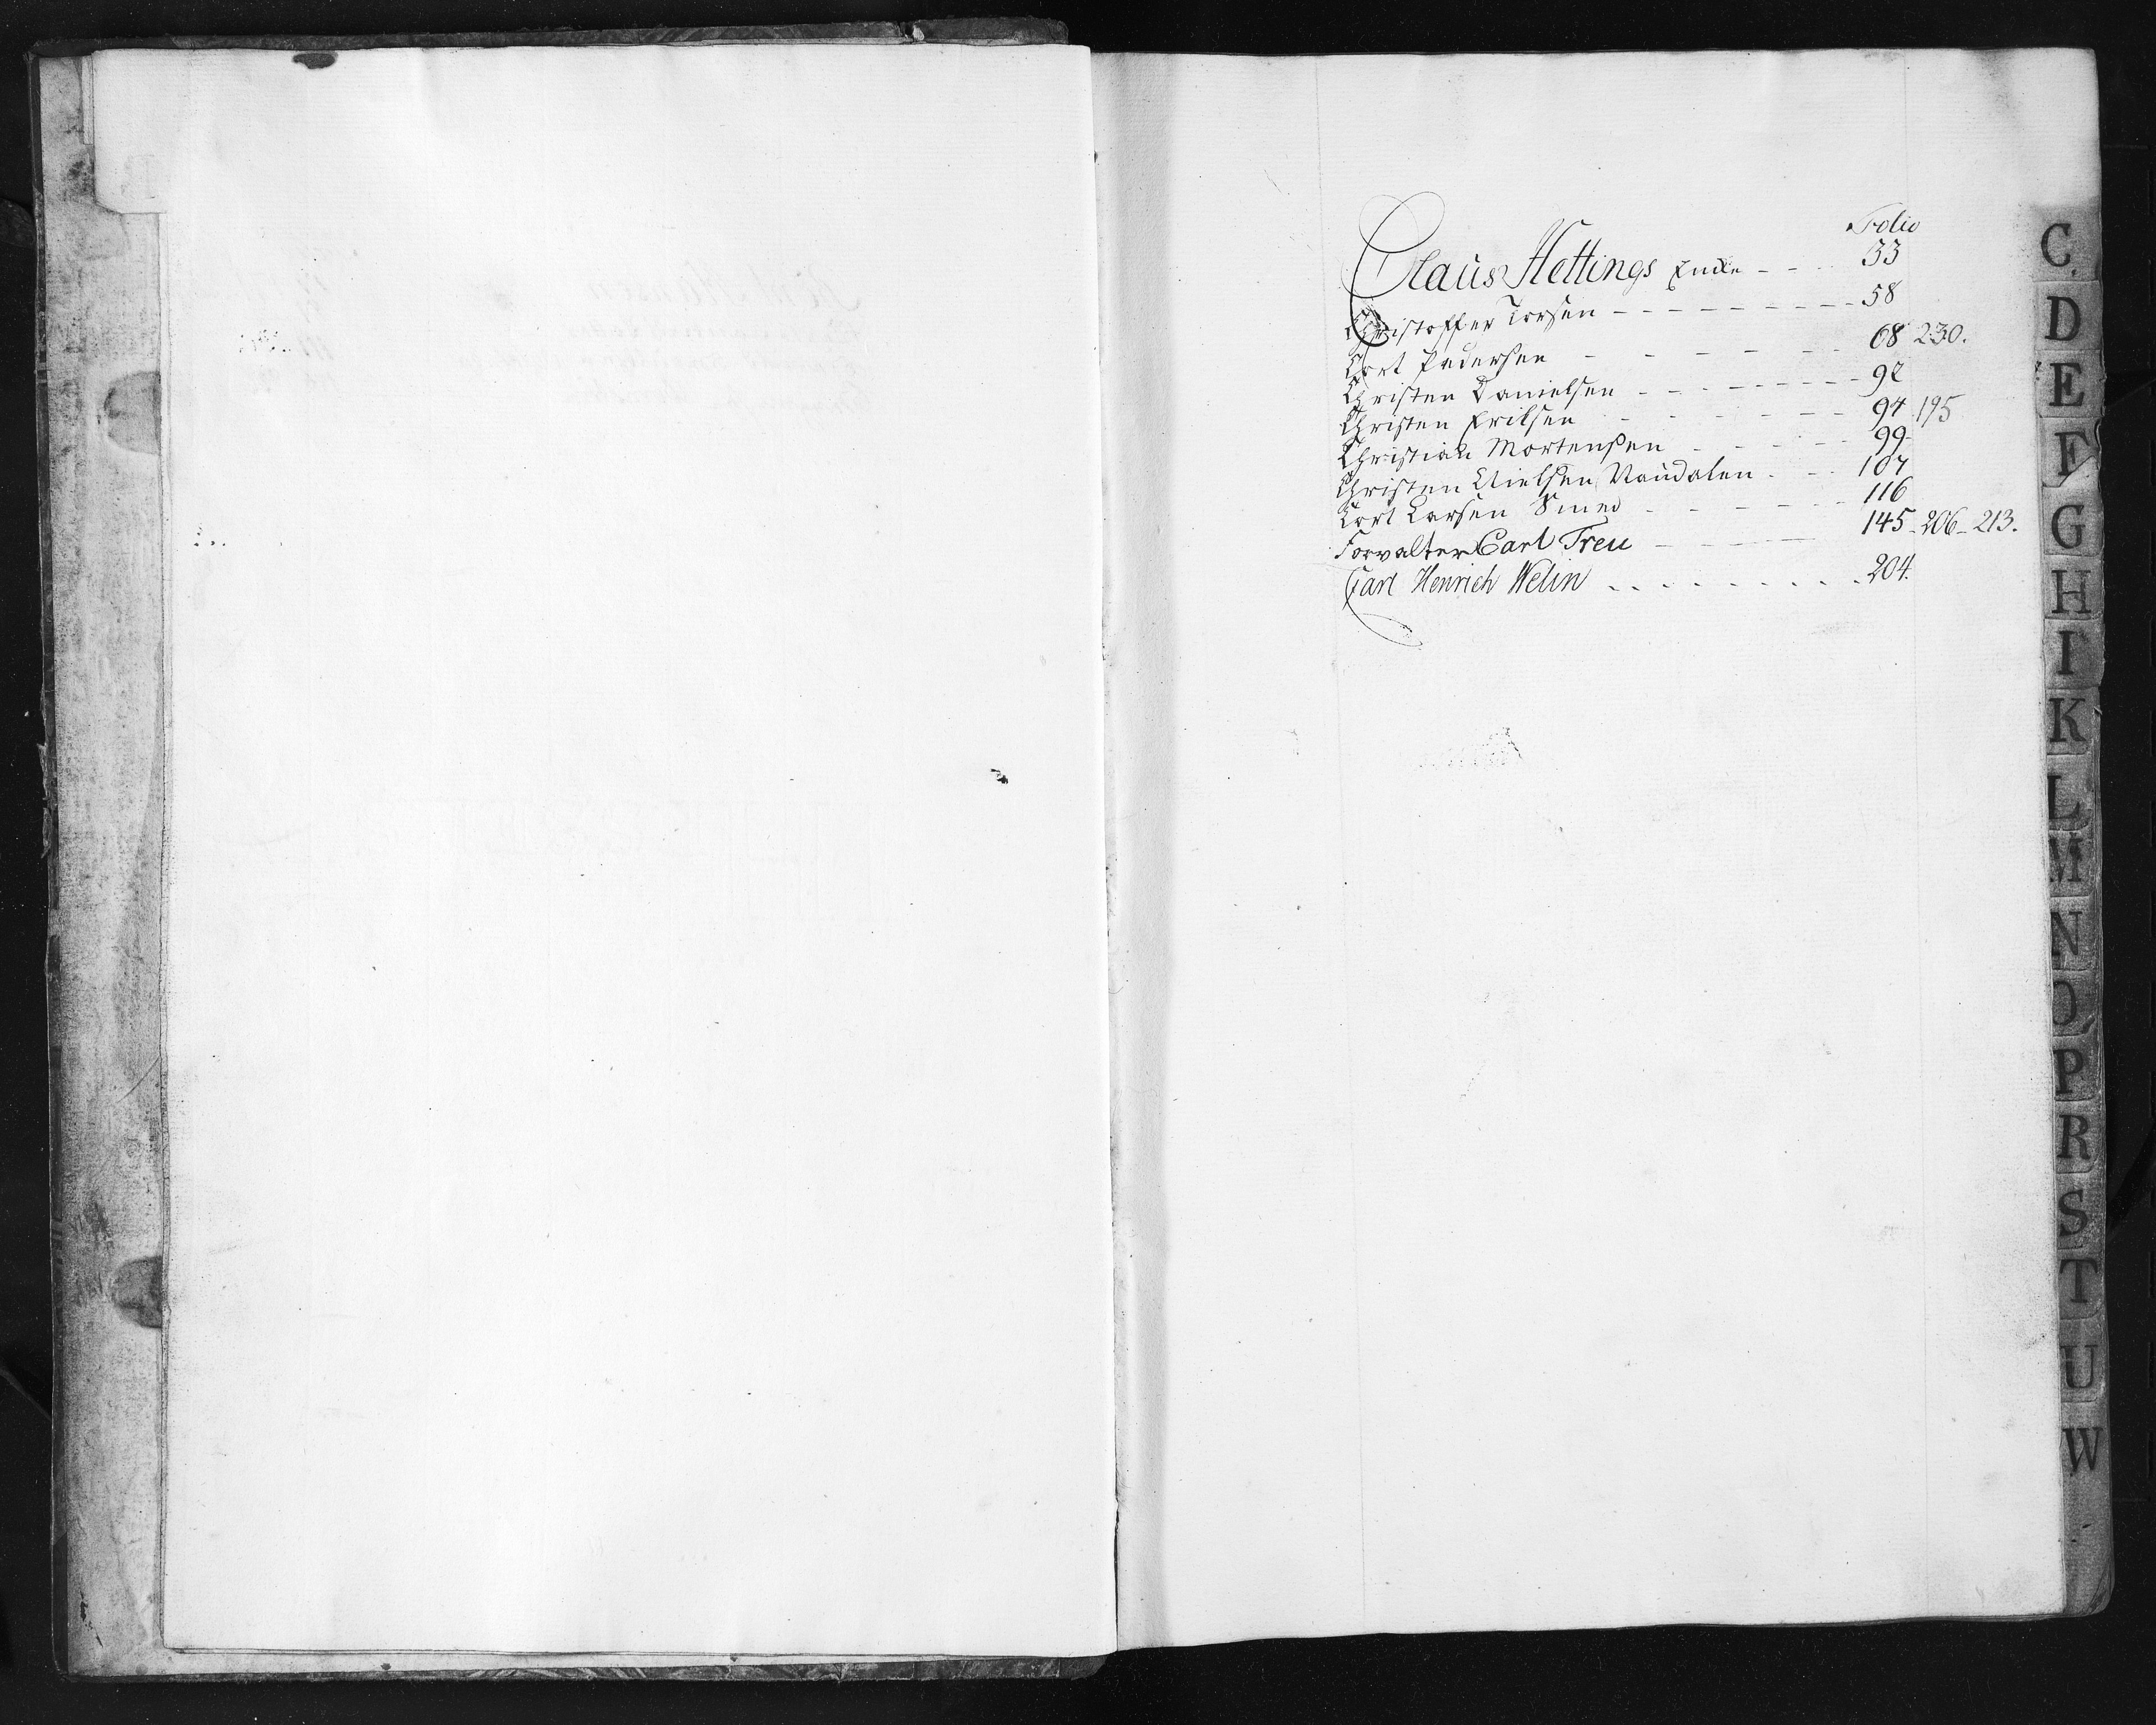 Folio
Claus Hettings Encke - - - 33
Christoffer Torsen - - - - - - - - - 58
Cort Pedersen - - - - - - 68 230.
Christen Danielsen - - - - - - - - - 92
Christen Eriksen - - - - - - 94 195
Christian Mortensen - - - - - 99
Christen Nielsen Naudalen - - - 107
Cort Larsen Smed - - - - - 116
Forvalter Carl Treu - - - - 145 - 206 - 213.
Carl Henrich Welin - - - - - - - - 204.
C.
D
E
F
G
H
I
K
L
M
N
O
P
R
S
T
U
W